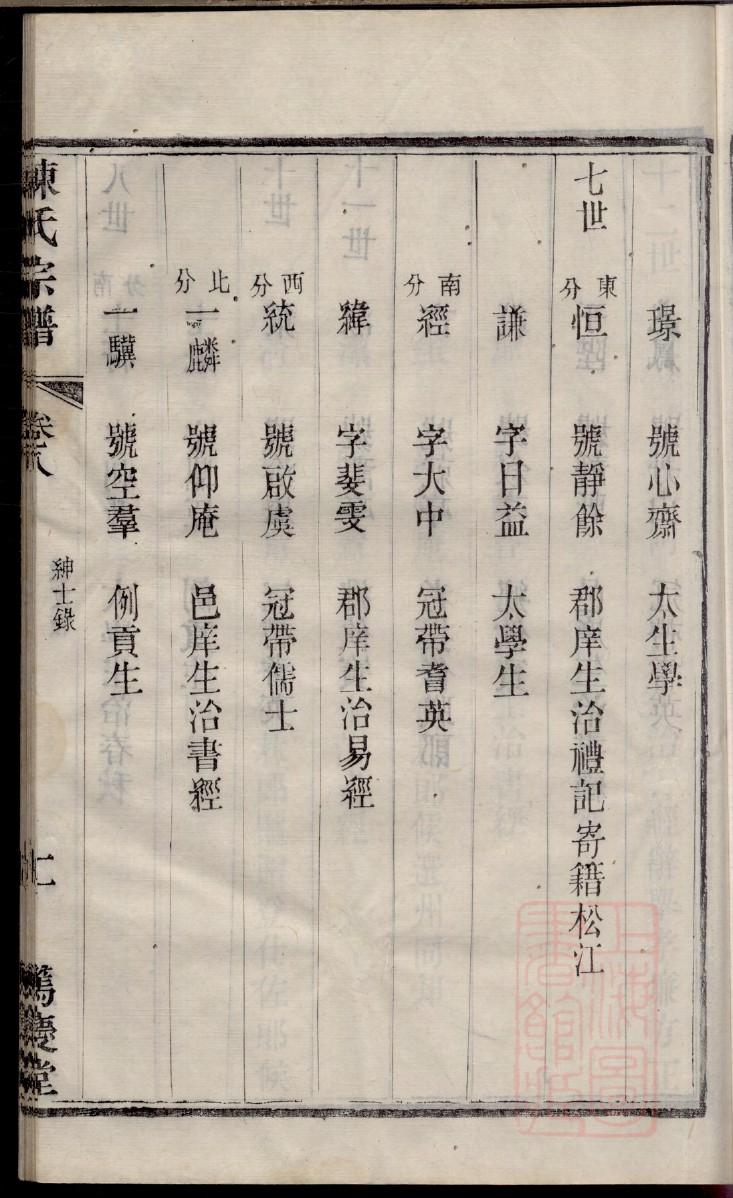 璟 號心齋 太生學
七世 東分 恒 號靜餘 郡庠生治禮記寄籍松江
謙 字日益 太學生
南分 經 字大中 冠帶耆英
緯 字斐雯 郡庠生治易經
西分 統 號啟虞 冠帶儒士
北分 一麟 號仰庵 邑庠生治書經
一驥 號空羣 例貢生
陳氏宗譜 卷八 紳士錄 篤慶堂
上海圖書館藏